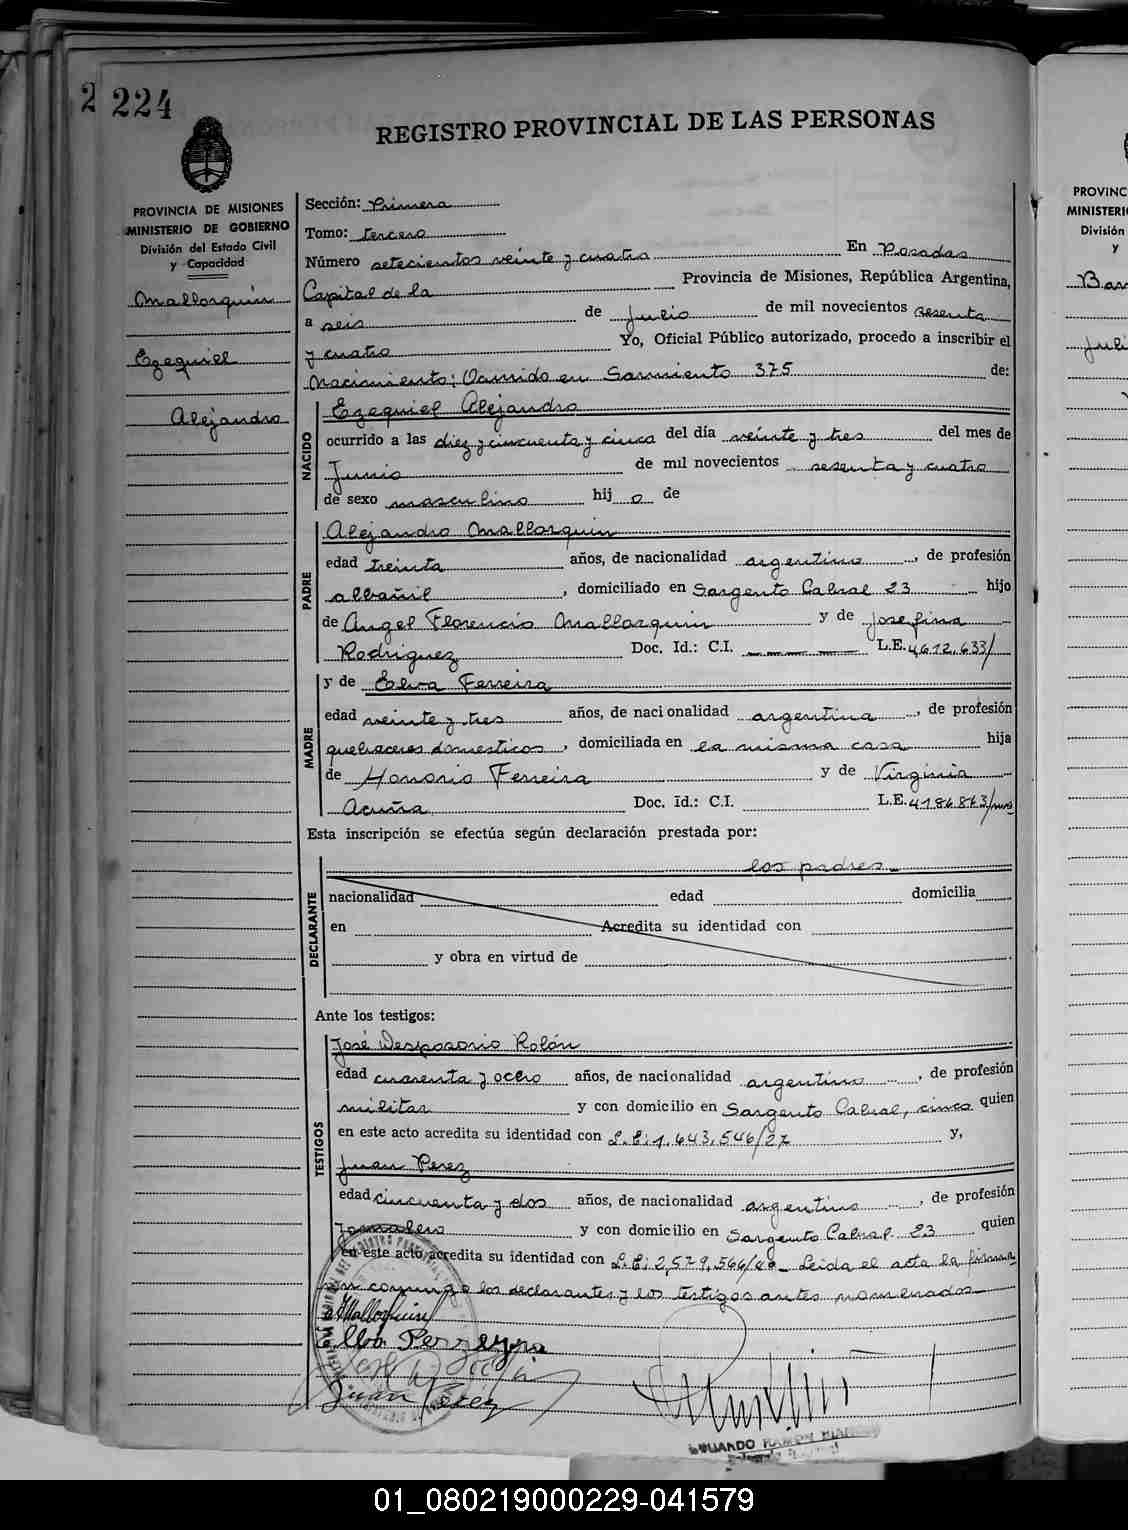 2 224
REGISTRO PROVINCIAL DE LAS PERSONAS
PROVINCIA DE MISIONES
MINISTERIO DE GOBIERNO
División del Estado Civil
y Capacidad
Mallorquin
Ezequiel
Alejandro
Sección: Primera
Tomo: tercero
Número setecientos veinte y cuatro En Posadas
Capital de la Provincia de Misiones, República Argentina,
a seis de Julio de mil novecientos sesenta
y cuatro Yo, Oficial Público autorizado, procedo a inscribir el
Nacimiento: Ocurrido en Sarmiento 375 de:
NACIDO
Ezequiel Alejandro
ocurrido a las diez y cincuenta y cinco del día veinte y tres del mes de
Junio de mil novecientos sesenta y cuatro
de sexo masculino hij o de
PADRE
Alejandro Mallorquin
edad treinta años, de nacionalidad argentino, de profesión
albañil, domiciliado en Sargento Cabral 23 hijo
de Angel Florencio Mallorquin y de Josefina
Rodriguez Doc. Id.: C.I. — — — — L.E. 4612.633/
MADRE
y de Elva Ferreira
edad veinte y tres años, de nacionalidad argentina, de profesión
quehaceres domesticos, domiciliada en la misma casa hija
de Honorio Ferreira y de Virginia
Acuña Doc. Id.: C.I. L.E.
Esta inscripción se efectúa según declaración prestada por:
DECLARANTE
los padres
nacionalidad edad domicilia
en Acredita su identidad con
y obra en virtud de
Ante los testigos:
TESTIGOS
José Desposorio Rolón
edad cuarenta y ocho años, de nacionalidad argentino, de profesión
militar y con domicilio en Sargento Cabral, cinco quien
en este acto acredita su identidad con L.E: 1.643.546/27 y,
Juan Perez
edad cincuenta y dos años, de nacionalidad argentino, de profesión
Jornalero y con domicilio en Sargento Cabral 23 quien
en este acto acredita su identidad con L.E: 2,579,566/ Leida el acta la firman
conmigo los declarantes y los testigos antes nomenados
AMallorquin
Elba Perreyra
Juan Perez
PROVINC
MINISTERI
División
y
Juli
01_080219000229-041579